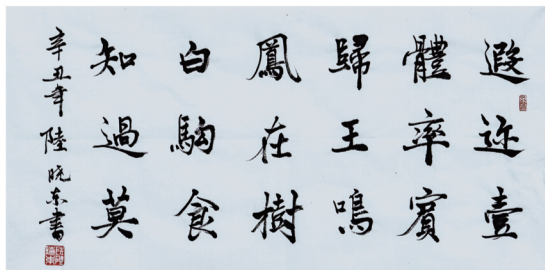 遐迩壹
體率賓
歸王鳴
鳳在樹
白駒食
知過莫
辛丑年陸晓东書